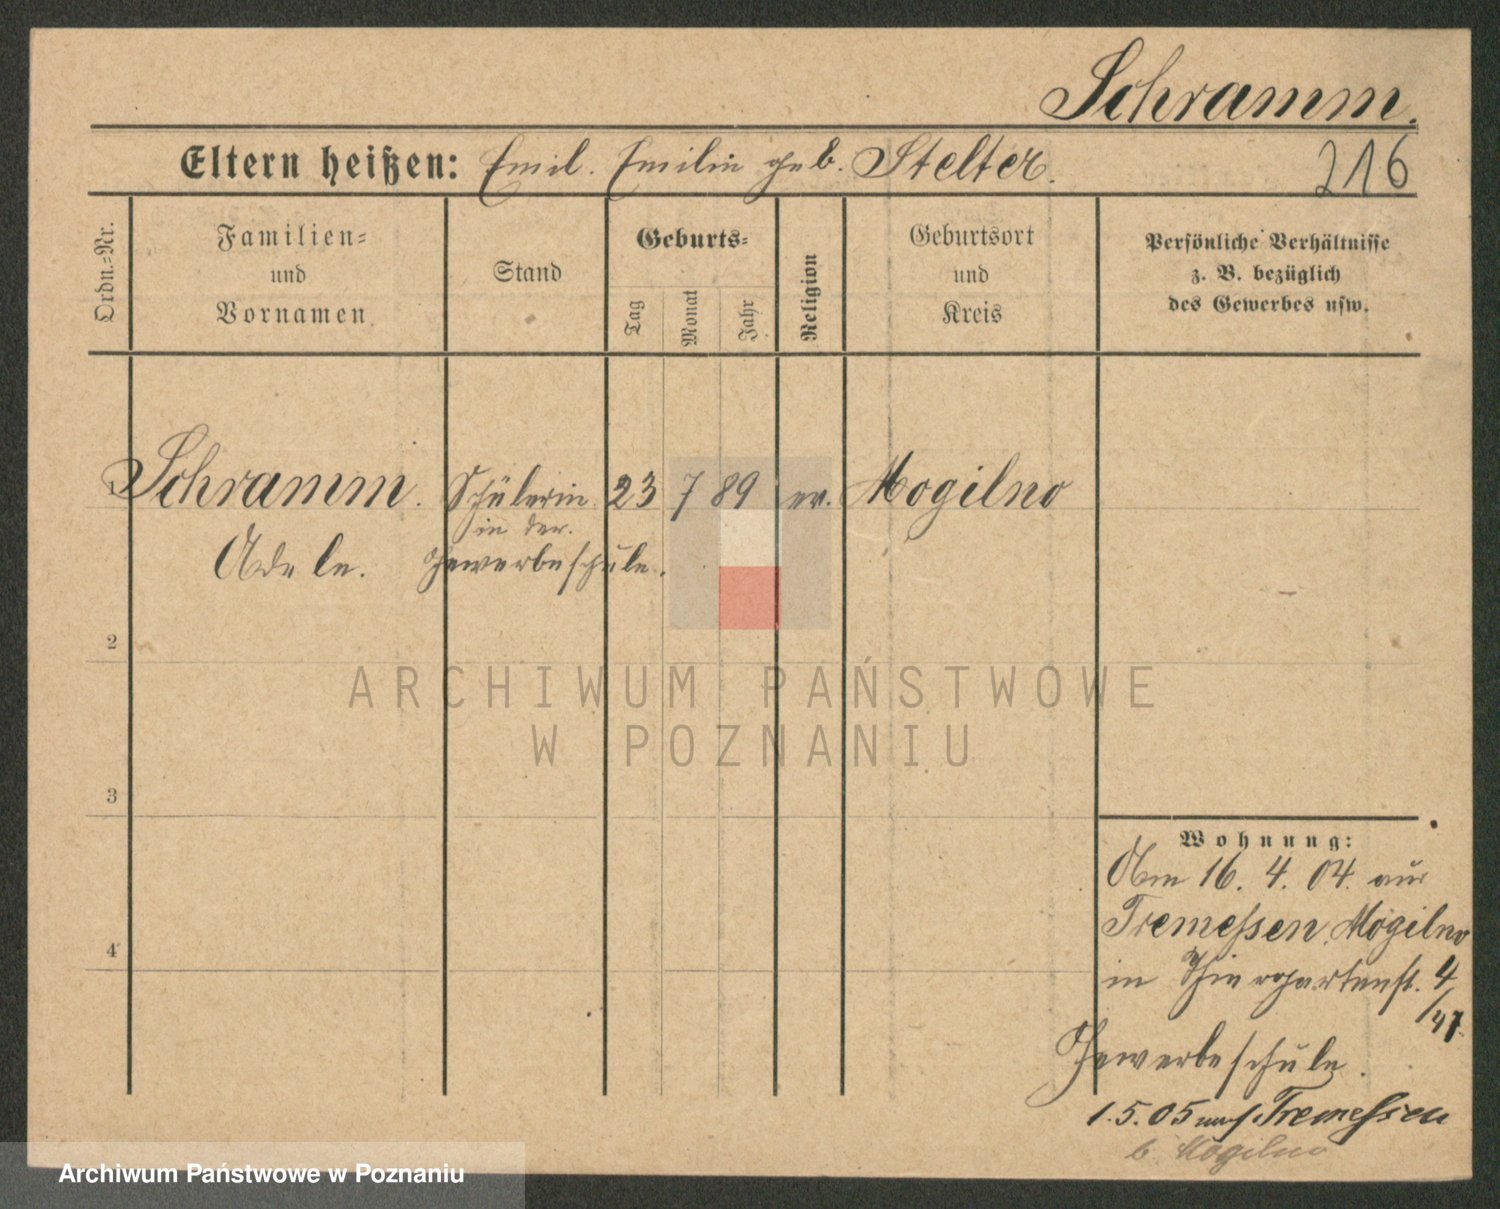 Schramm.
Eltern heißen: Emil. Emilie geb. Stelter.
216
Ordn.-Nr.
Familien-
und
Vornamen
Stand
Geburts-
Tag
Monat
Jahr
Religion
Geburtsort
und
Kreis
Persönliche Verhältnisse
z. B. bezüglich
des Gewerbes usw.
1 Schramm. Schülerin 23 7 89 ev. Mogilno
in der.
Adele. Gewerbeschule.
2
3
4
ARCHIWUM PAŃSTWOWE
W POZNANIU
Wohnung:
Am 16. 4. 04. aus
Tremessen, Mogilno
in Thiergartenst. 4
Gewerbeschule.
1. 5. 05 nach Tremessen
b. Mogilno
Archiwum Państwowe w Poznaniu